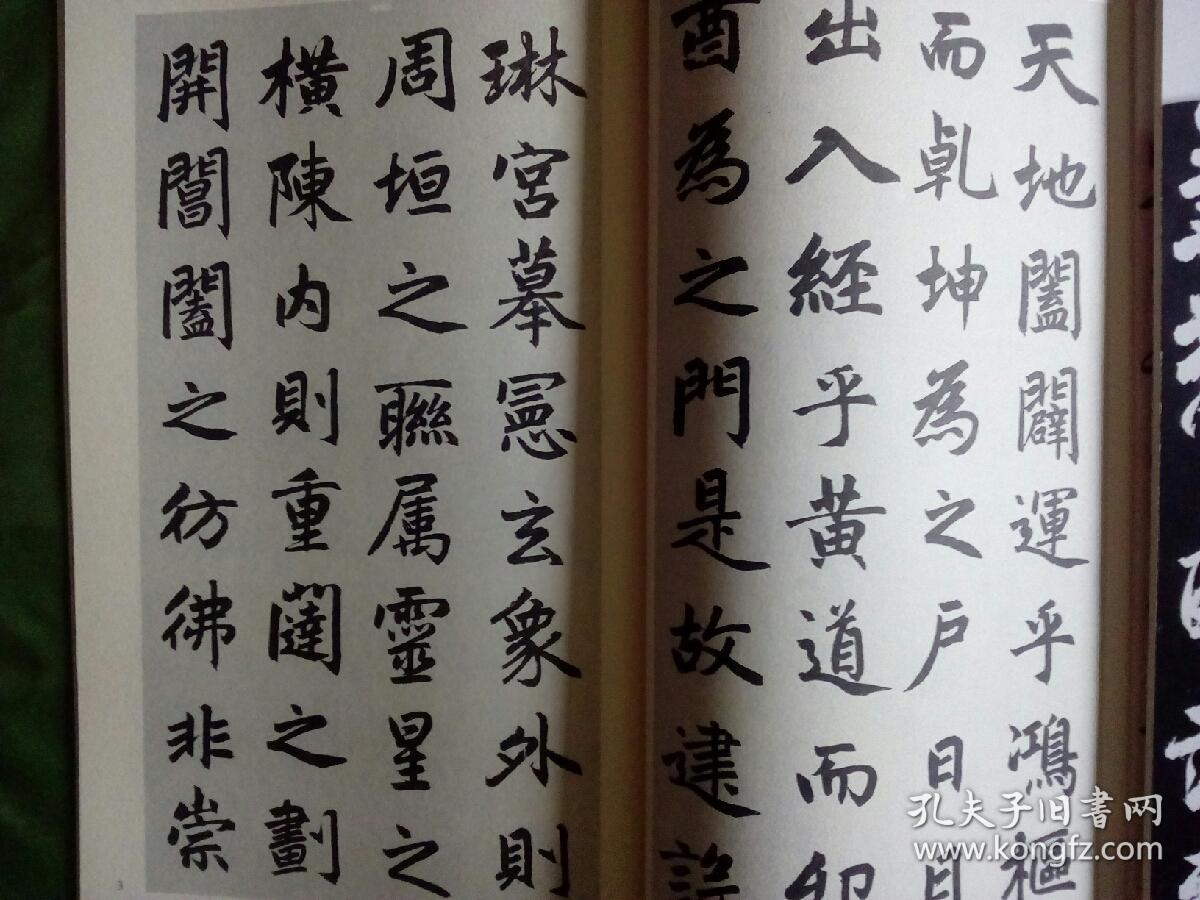 天地闔闢運乎鴻樞
而乹坤為之户日月
出入經乎黃道而卯
酉為之門是故建設
琳宮摹憲玄象外則
周垣之聮属靈星之
橫陳内則重闥之劃
開閶闔之彷彿非崇
3
孔夫子旧书网
www.kongfz.com